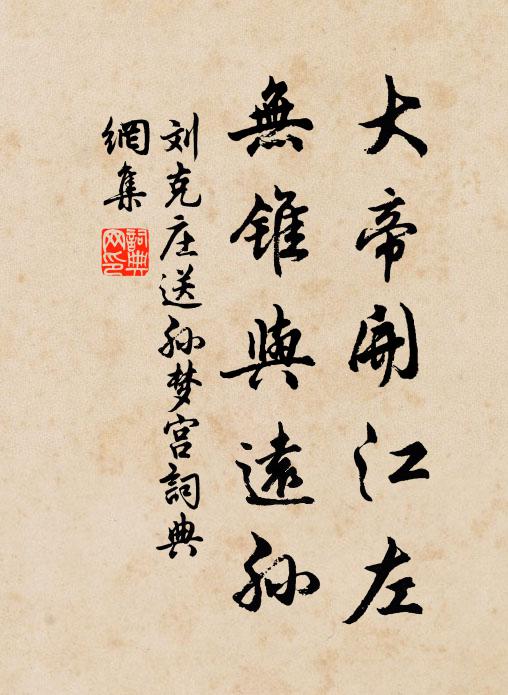 大帝開江左
無錐與遠孫
刘克庄送孙梦宫詞典
網集
詞典網印